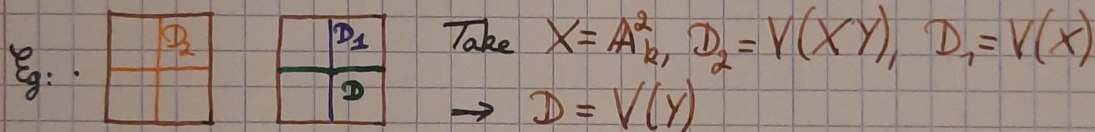 Eg: · D₂ D₁ D Take X = 𝔸²ₖ, D₂ = V(XY), D₁ = V(X)
→ D = V(Y)